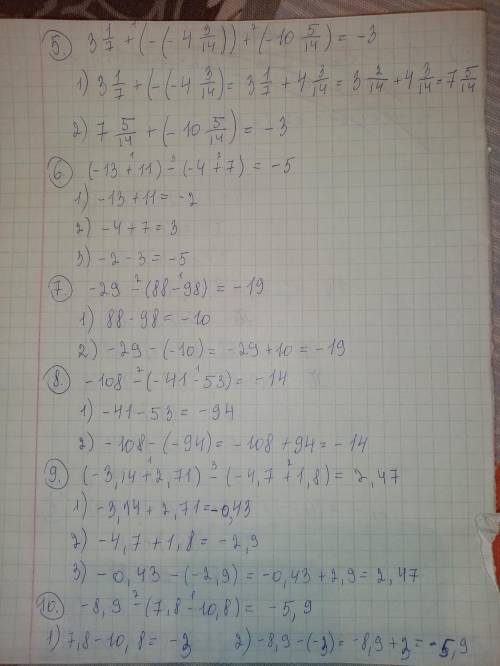 5. 3 1/7 +¹ (-(-4 3/14)) +² (-10 5/14) = -3
1) 3 1/7 + (-(-4 3/14) = 3 1/7 + 4 3/14 = 3 2/14 + 4 3/14 = 7 5/14
2) 7 5/14 + (-10 5/14) = -3
6. (-13 +¹ 11) -³ (-4 +² 7) = -5
1) -13 + 11 = -2
2) -4 + 7 = 3
3) -2 - 3 = -5
7. -29 -² (88 -¹ 98) = -19
1) 88 - 98 = -10
2) -29 - (-10) = -29 + 10 = -19
8. -108 -² (-41 -¹ 53) = -14
1) -41 - 53 = -94
2) -108 - (-94) = -108 + 94 = -14
9. (-3,14 +¹ 2,71) -³ (-4,7 +² 1,8) = 2,47
1) -3,14 + 2,71 = -0,43
2) -4,7 + 1,8 = -2,9
3) -0,43 - (-2,9) = -0,43 + 2,9 = 2,47
10. -8,9 -² (7,8 -¹ 10,8) = -5,9
1) 7,8 - 10,8 = -3 2) -8,9 - (-3) = -8,9 + 3 = -5,9